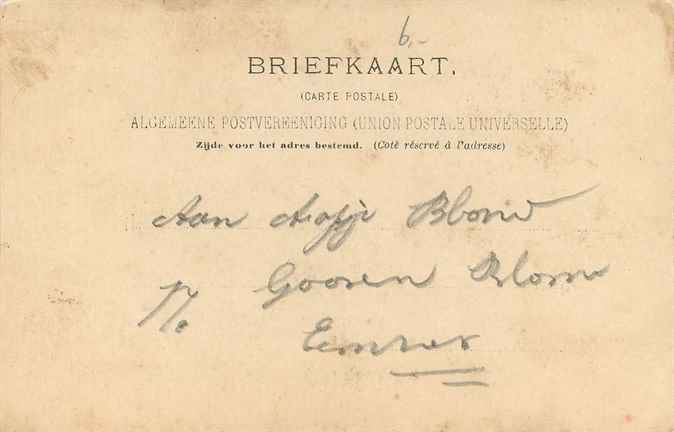 6,-
BRIEFKAART.
(CARTE POSTALE)
ALGEMEENE POSTVEREENIGING (UNION POSTALE UNIVERSELLE)
Zijde voor het adres bestemd. (Coté réservé à l'adresse)
Aan Aafje Blom
p/o Goosen Blom